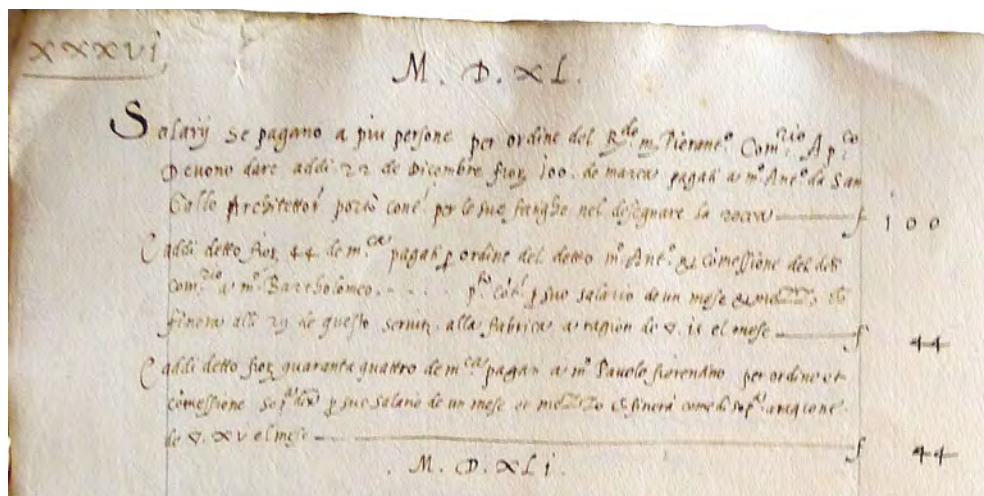 xxxvi
M. D. XL.
Salarij se pagano a piu persone per ordine del R.do m. Pierant.o Com.rio Ap.co
Devono dare addi 22 de Dicembre fior. 100. de marca pagati a m.o Ant.o da San
Gallo Architettor portò con.ti per le sue fatighe nel desegnare la rocca f 100
E addi detto fior. 44 de m.ca pagati p ordine del detto m.o Ant.o et comessione del detto
Com.rio a m.o Bartholomeo . . . . . p suo salario de un mese et
finera alli 29 de questo servit. alla fabrica a ragion de ▽. is el mese f 44
E addi detto fior. quaranta quattro de m.ca pagati a m.o Pauolo fiorentino per ordine et
comessione p suo salario de un mese et mezzo et finera come di sop.a aragione
de ▽. xv el mese f 44
. M. D. XLi.